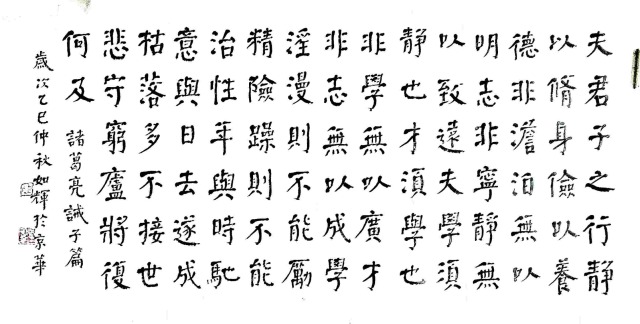 夫君子之行靜
以脩身儉以養
德非澹泊無以
明志非寧靜無
以致遠夫學須
靜也才須學也
非學無以廣才
非志無以成學
淫漫則不能勵
精險躁則不能
治性年與時馳
意與日去遂成
枯落多不接世
悲守窮廬將復
何及
諸葛亮誡子篇
歲次乙巳仲秋如輝於京華